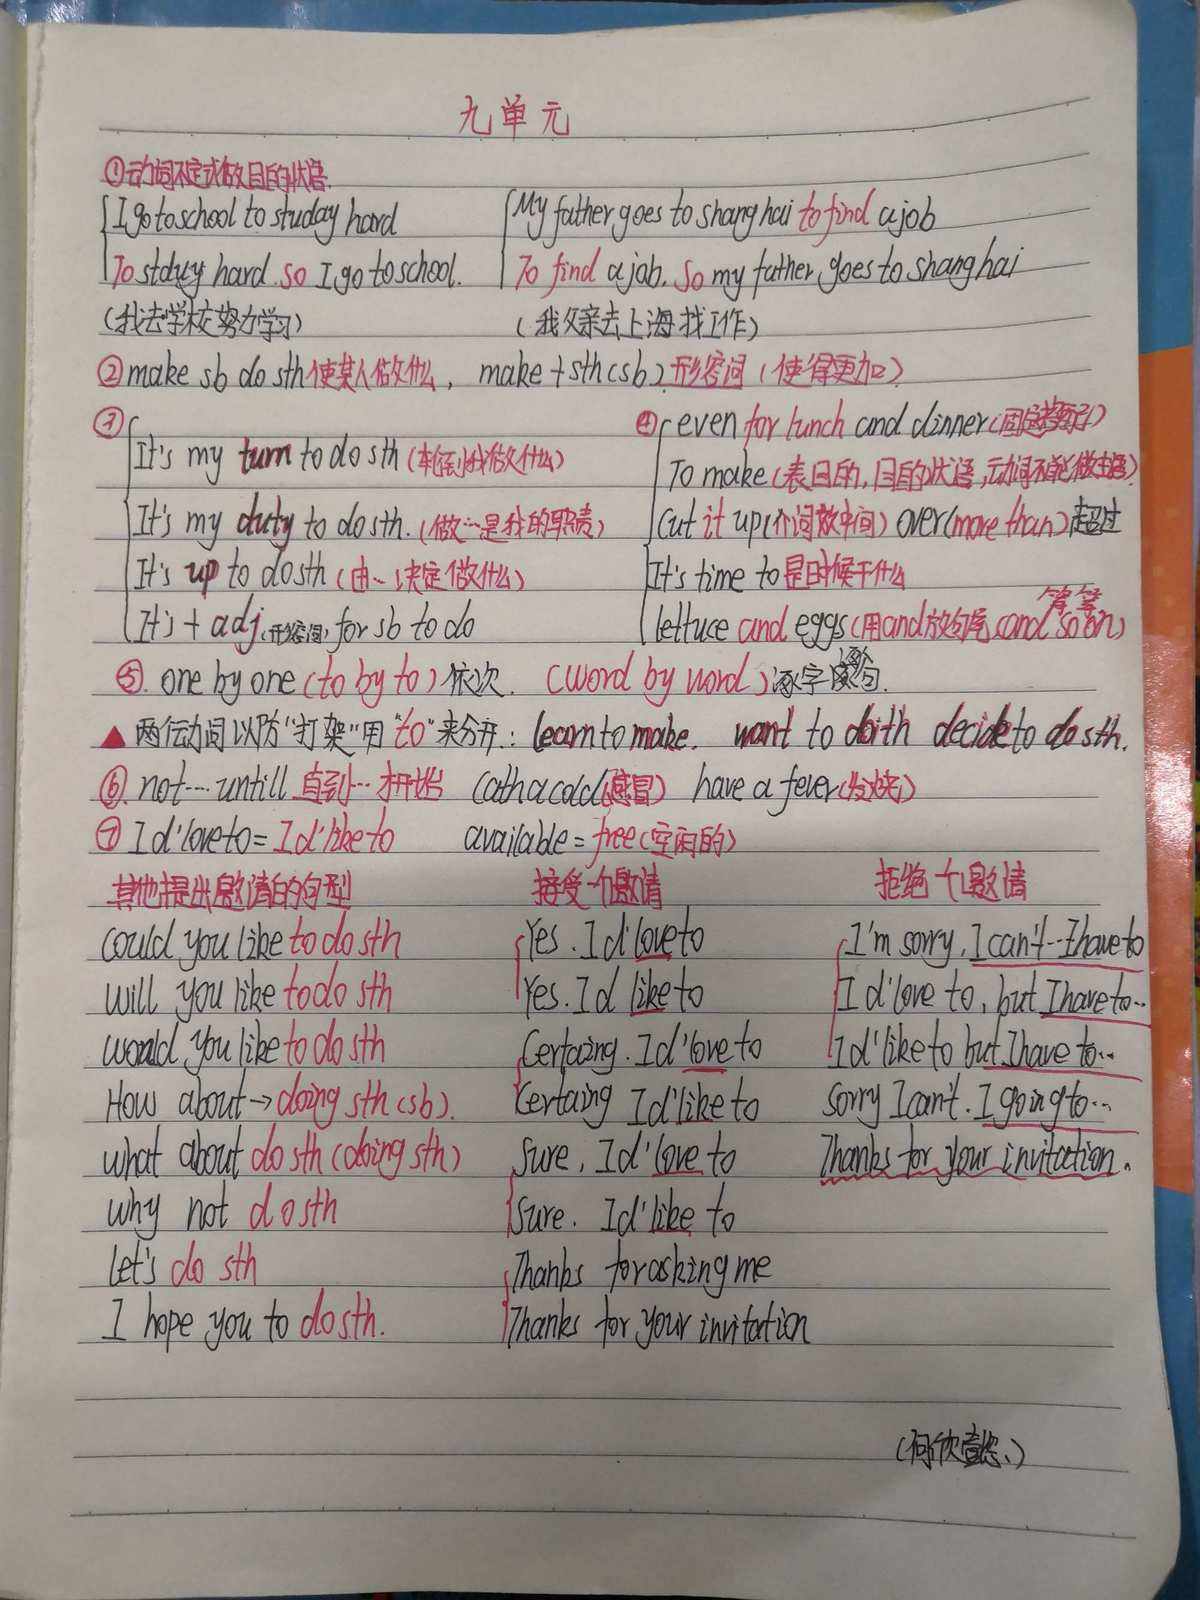 九单元
①动词不定式做目的状语
I go to school to studay hard My father goes to shanghai to find a job
To stduy hard so I go to school. To find a job. So my father goes to shanghai
(我去学校努力学习) (我父亲去上海找工作)
②make sb do sth使某人做什么, make+sth(sb)形容词(使得更加)
③ ④even for lunch and dinner(固定搭配)
It's my turn to do sth(轮到我做什么)
To make(表目的,目的状语,动词不能做主语)
It's my duty to do sth.(做…是我的职责) Cut it up(介词放中间) over(more than)超过
It's up to do sth(由…决定做什么) It's time to是时候干什么
It's + adj(形容词) for sb to do lettuce and eggs(用and放句尾 and so on)等等
⑤. one by one (to by to)依次. (word by word)逐字逐句.
▲两行动词以防"打架"用"to"来分开: learn to make. want to do ith decide to do sth.
⑥. not…untill 直到…才开始 cath a cold(感冒) have a fever(发烧)
⑦Id'love to=Id'like to available=free(空闲的)
其他提出邀请的句型 接受一个邀请 拒绝一个邀请
could you like to do sth Yes. Id'love to I'm sorry, I can't…I have to
will you like to do sth Yes. Id like to Id'love to, but I have to…
would you like to do sth Certaing. Id'love to Id'like to but I have to…
How about→doing sth(sb). Certaing Id'like to Sorry I can't. I going to…
what about do sth (doing sth) Sure, Id'love to Thanks for your invitation.
why not do sth Sure. Id'like to
Let's do sth Thanks for asking me
I hope you to do sth. Thanks for your invitation